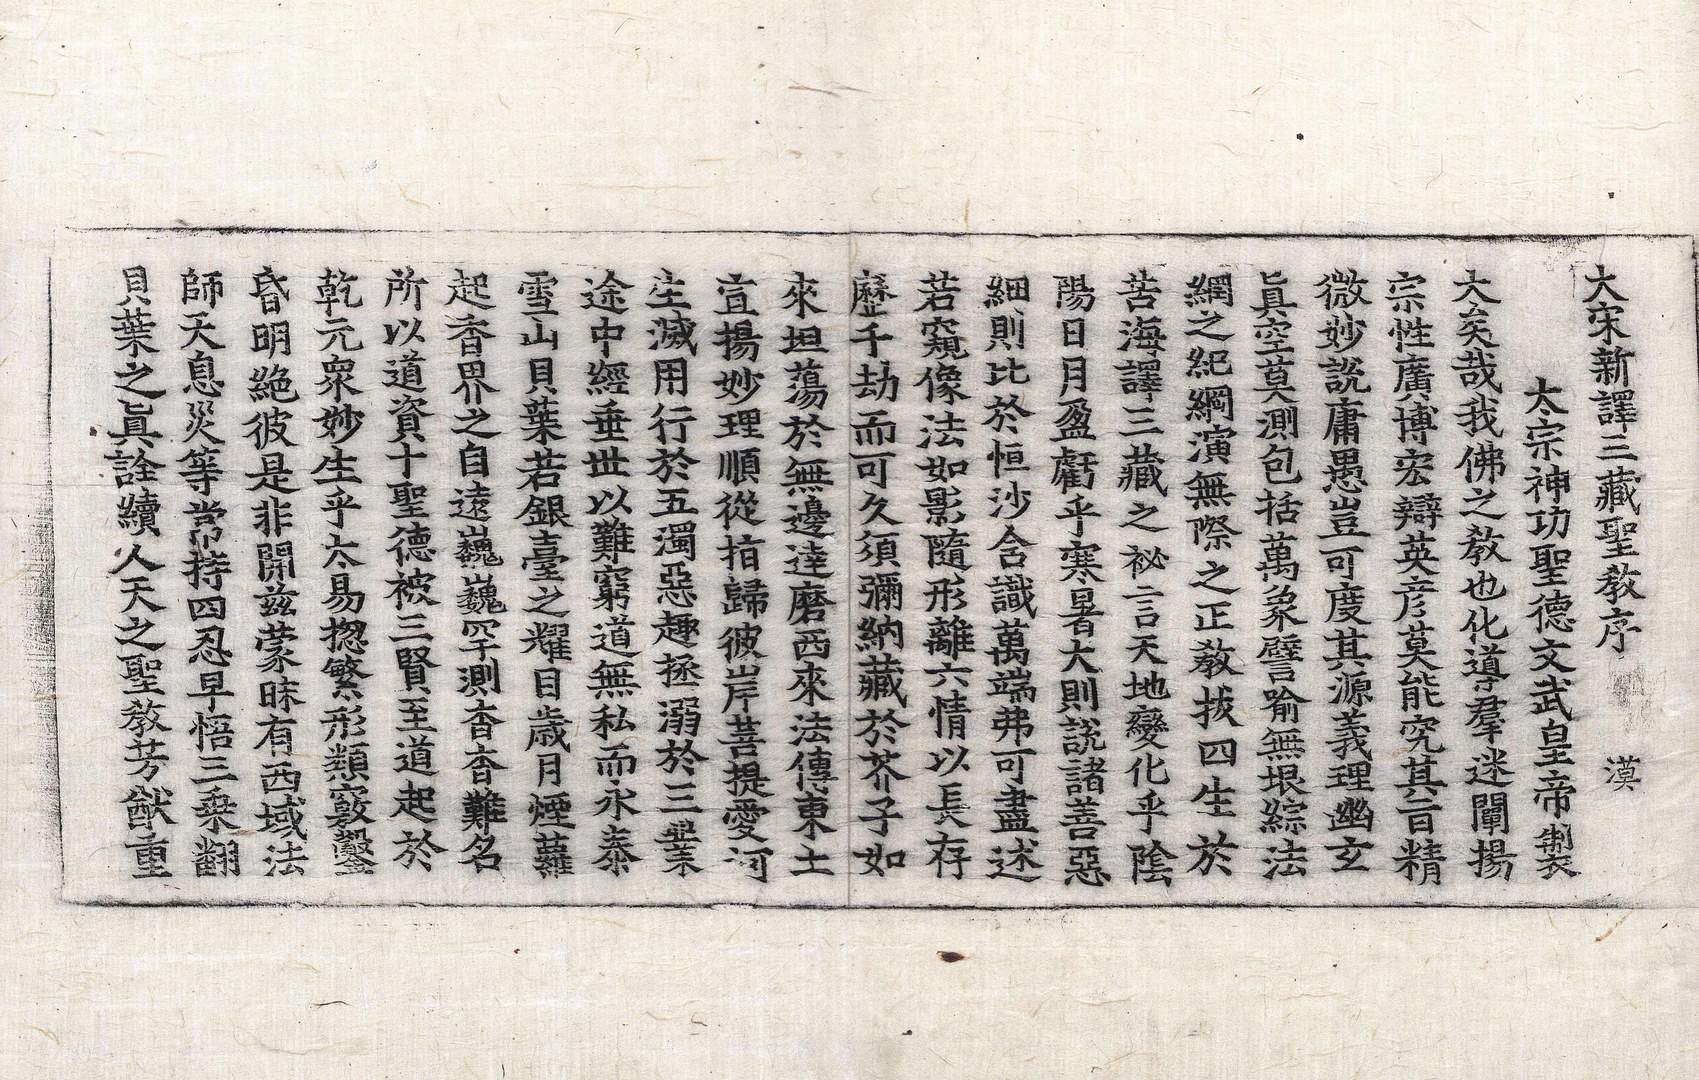 大宋新譯三藏聖教序 漠
太宗神功聖德文武皇帝製
大矣哉我佛之教也化導羣迷闡揚
宗性廣博宏辯英彥莫能究其旨精
微妙說庸愚豈可度其源義理幽玄
眞空莫測包括萬象譬喻無垠綜法
網之紀綱演無際之正教拔四生於
苦海譯三藏之祕言天地變化乎陰
陽日月盈虧乎寒暑大則說諸善惡
細則比於恒沙含識萬端弗可盡述
若窺像法如影隨形離六情以長存
歷千劫而可久須彌納藏於芥子如
來坦蕩於無邊達磨西來法傳東土
宣揚妙理順從指歸彼岸菩提愛河
生滅用行於五濁惡趣拯溺於三業
途中經垂世以難窮道無私而永泰
雪山貝葉若銀臺之耀目歲月煙蘿
起香界之自遠巍巍罕測杳杳難名
所以道資十聖德被三賢至道起於
乾元衆妙生乎太易揔繁形類竅鑿
昏明絶彼是非開茲蒙昧有西域法
師天息災等常持四忍早悟三乘翻
貝葉之眞詮續人天之聖教芳猷重